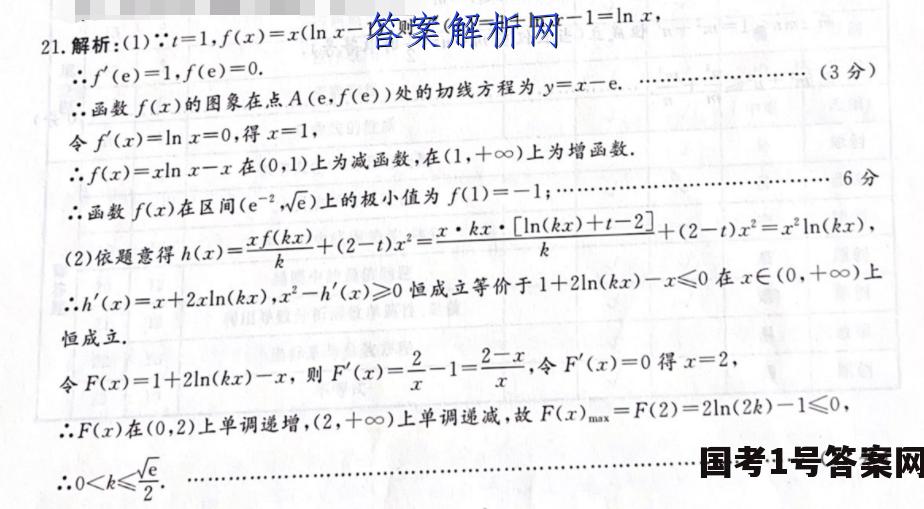 21.解析:(1)∵t=1,f(x)=x(ln x-
则
-1=ln x,
答案解析网
∴f′(e)=1,f(e)=0.
∴函数 f(x)的图象在点A(e,f(e))处的切线方程为 y=x-e. ……………………(3分)
令 f′(x)=ln x=0,得x=1,
∴f(x)=xln x-x在(0,1)上为减函数,在(1,+∞)上为增函数.
∴函数 f(x)在区间(e⁻²,√e)上的极小值为 f(1)=-1;……………………………… 6分
(2)依题意得 h(x)=xf(kx)/k+(2-t)x²=x·kx·[ln(kx)+t-2]/k+(2-t)x²=x²ln(kx),
∴h′(x)=x+2xln(kx),x²-h′(x)≥0恒成立等价于1+2ln(kx)-x≤0在x∈(0,+∞)上
恒成立.
令F(x)=1+2ln(kx)-x,则F′(x)=2/x-1=(2-x)/x,令F′(x)=0得x=2,
∴F(x)在(0,2)上单调递增,(2,+∞)上单调递减,故F(x)max=F(2)=2ln(2k)-1≤0,
∴0<k≤√e/2. ………………………………………………
国考1号答案网